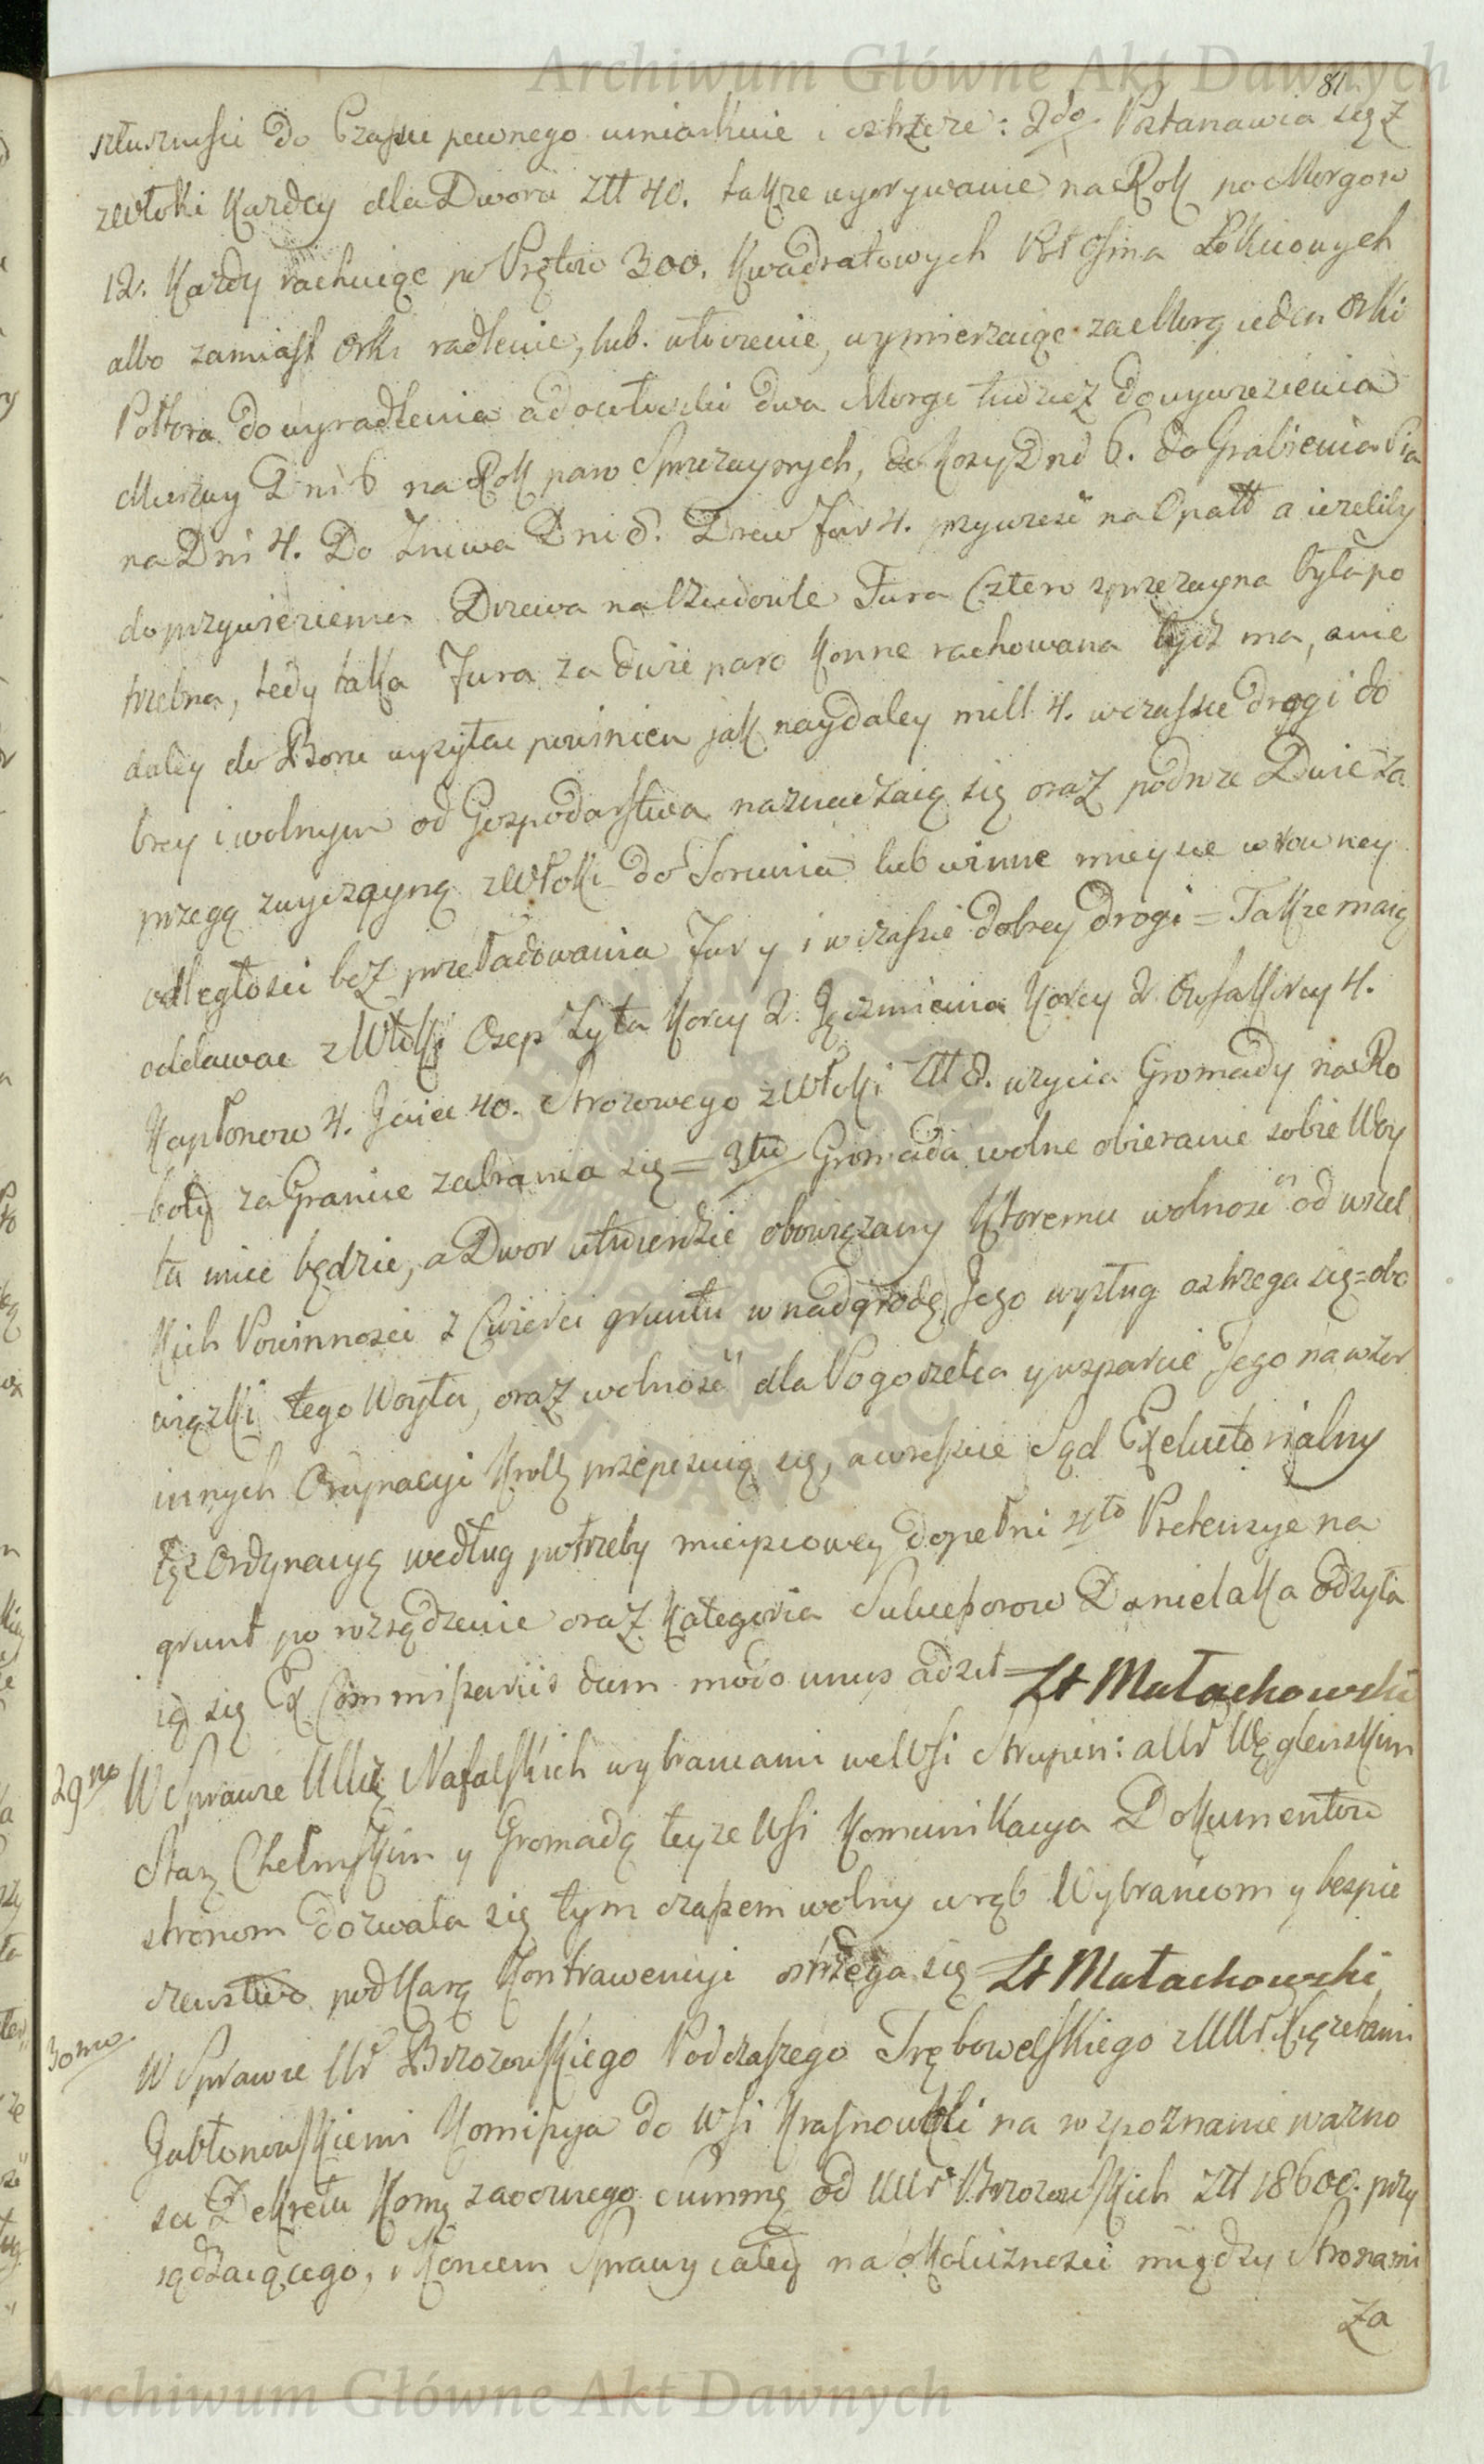 Archiwum Główne Akt Dawnych
81.
słuszności do Czasu pewnego umiarkuie i ostrzeże: 2do. Postanawia się z
zWłoki Kazdey dla Dworu Złł 40. takze wyorywanie na Rok po Morgow
12. Kazdy rachuiąc po Prętow 300. Kwadratowych Pół Osma Łokciowych
albo zamiast Orki radlenie, lub. włoczenie, wymierzaiąc za Morg ieden Orki
Połtora do wyradlenia a do włoczki dwa Morgi tudziez do wywiezienia
Mierzwy Dni 6 na Rok paro Sprzezaynych, do Kosy Dni 6. do Grabienia Sia
na Dni 4. Do Zniwa Dni 8. Drew Fur 4. przywieść na Opałł a iezeliby
do przywiezienia Drzewa na Budowle Fura Cztero sprzezayna była po
trzebna, tedy taka Fura za dwie paro Konne rachowana bydź ma, a nie
daley do Boru wysyłac powinien jak naydaley mill 4. w czasie drogi do
brey i wolnym od Gospodarstwa naznaczaią się oraz podroze Dwie za
przęgą zwyczayną zWłoki do Torunia lub w inne mieysce w rowney
odległości bez przeładowania Fury i w czasie dobrey drogi = Takze maią
oddawac zWłoki Osep Zyta Korcy 2. Jęczmienia Korcy 2. Owsa Korcy 4.
Kapłonow 4. Jaiec 40. Strozowego z Włoki Złł 8. uzycia Gromady na Ro
boty za Granice zabrania się = 3tio Gromada wolne obieranie sobie Woy
ta mieć będzie, a Dwor utwierdzic obowiązany Ktoremu wolność od wszel
kich Powinności z Cwierci gruntu w nadgrodę Jego wysług ostrzega się = obo
wiązki tego Woyta, oraz wolność dla Pogorzelca y wsparcie Jego na wzor
innych Ordynacyi Krolł przepisuią się, a wreście Sąd Exekutorialny
tęz Ordynacyą według potrzeby mieyscowey dopełni 4to Pretensye na
grunt po rozsądzenie oraz Kategoria Sukcessorow Danielaka odzyła
ią się Ex Commissariis dum modo unus adsit = Lt Małachowski
29no W Sprawie UUr Nafalskich wybrańcami we Wsi Strupin: a Ur Węgleńskim
Starą Chełmskim y Gromadą teyze Wsi Komunikacya Dokumentow
stronom dozwala się tym czasem wolny wrąb Wybrańcom y bespie
czenstwo pod Karą Kontrawencyi ostrzega się Lt Małachowski
30mo. W Sprawie Ur Brzozowskiego Podczaszego Trębowelskiego z UUr Xiązętami
Jabłonowskiemi Komissya do Wsi Krasnowoli na rozpoznanie wazno
ści Dekretu Komą zaocznego Summę od UUr Brzozowskich Złł 18600. przy
sądzaiącego, i Koncem Sprawy całey na okoliczności między Stronami
Za
Archiwum Główne Akt Dawnych